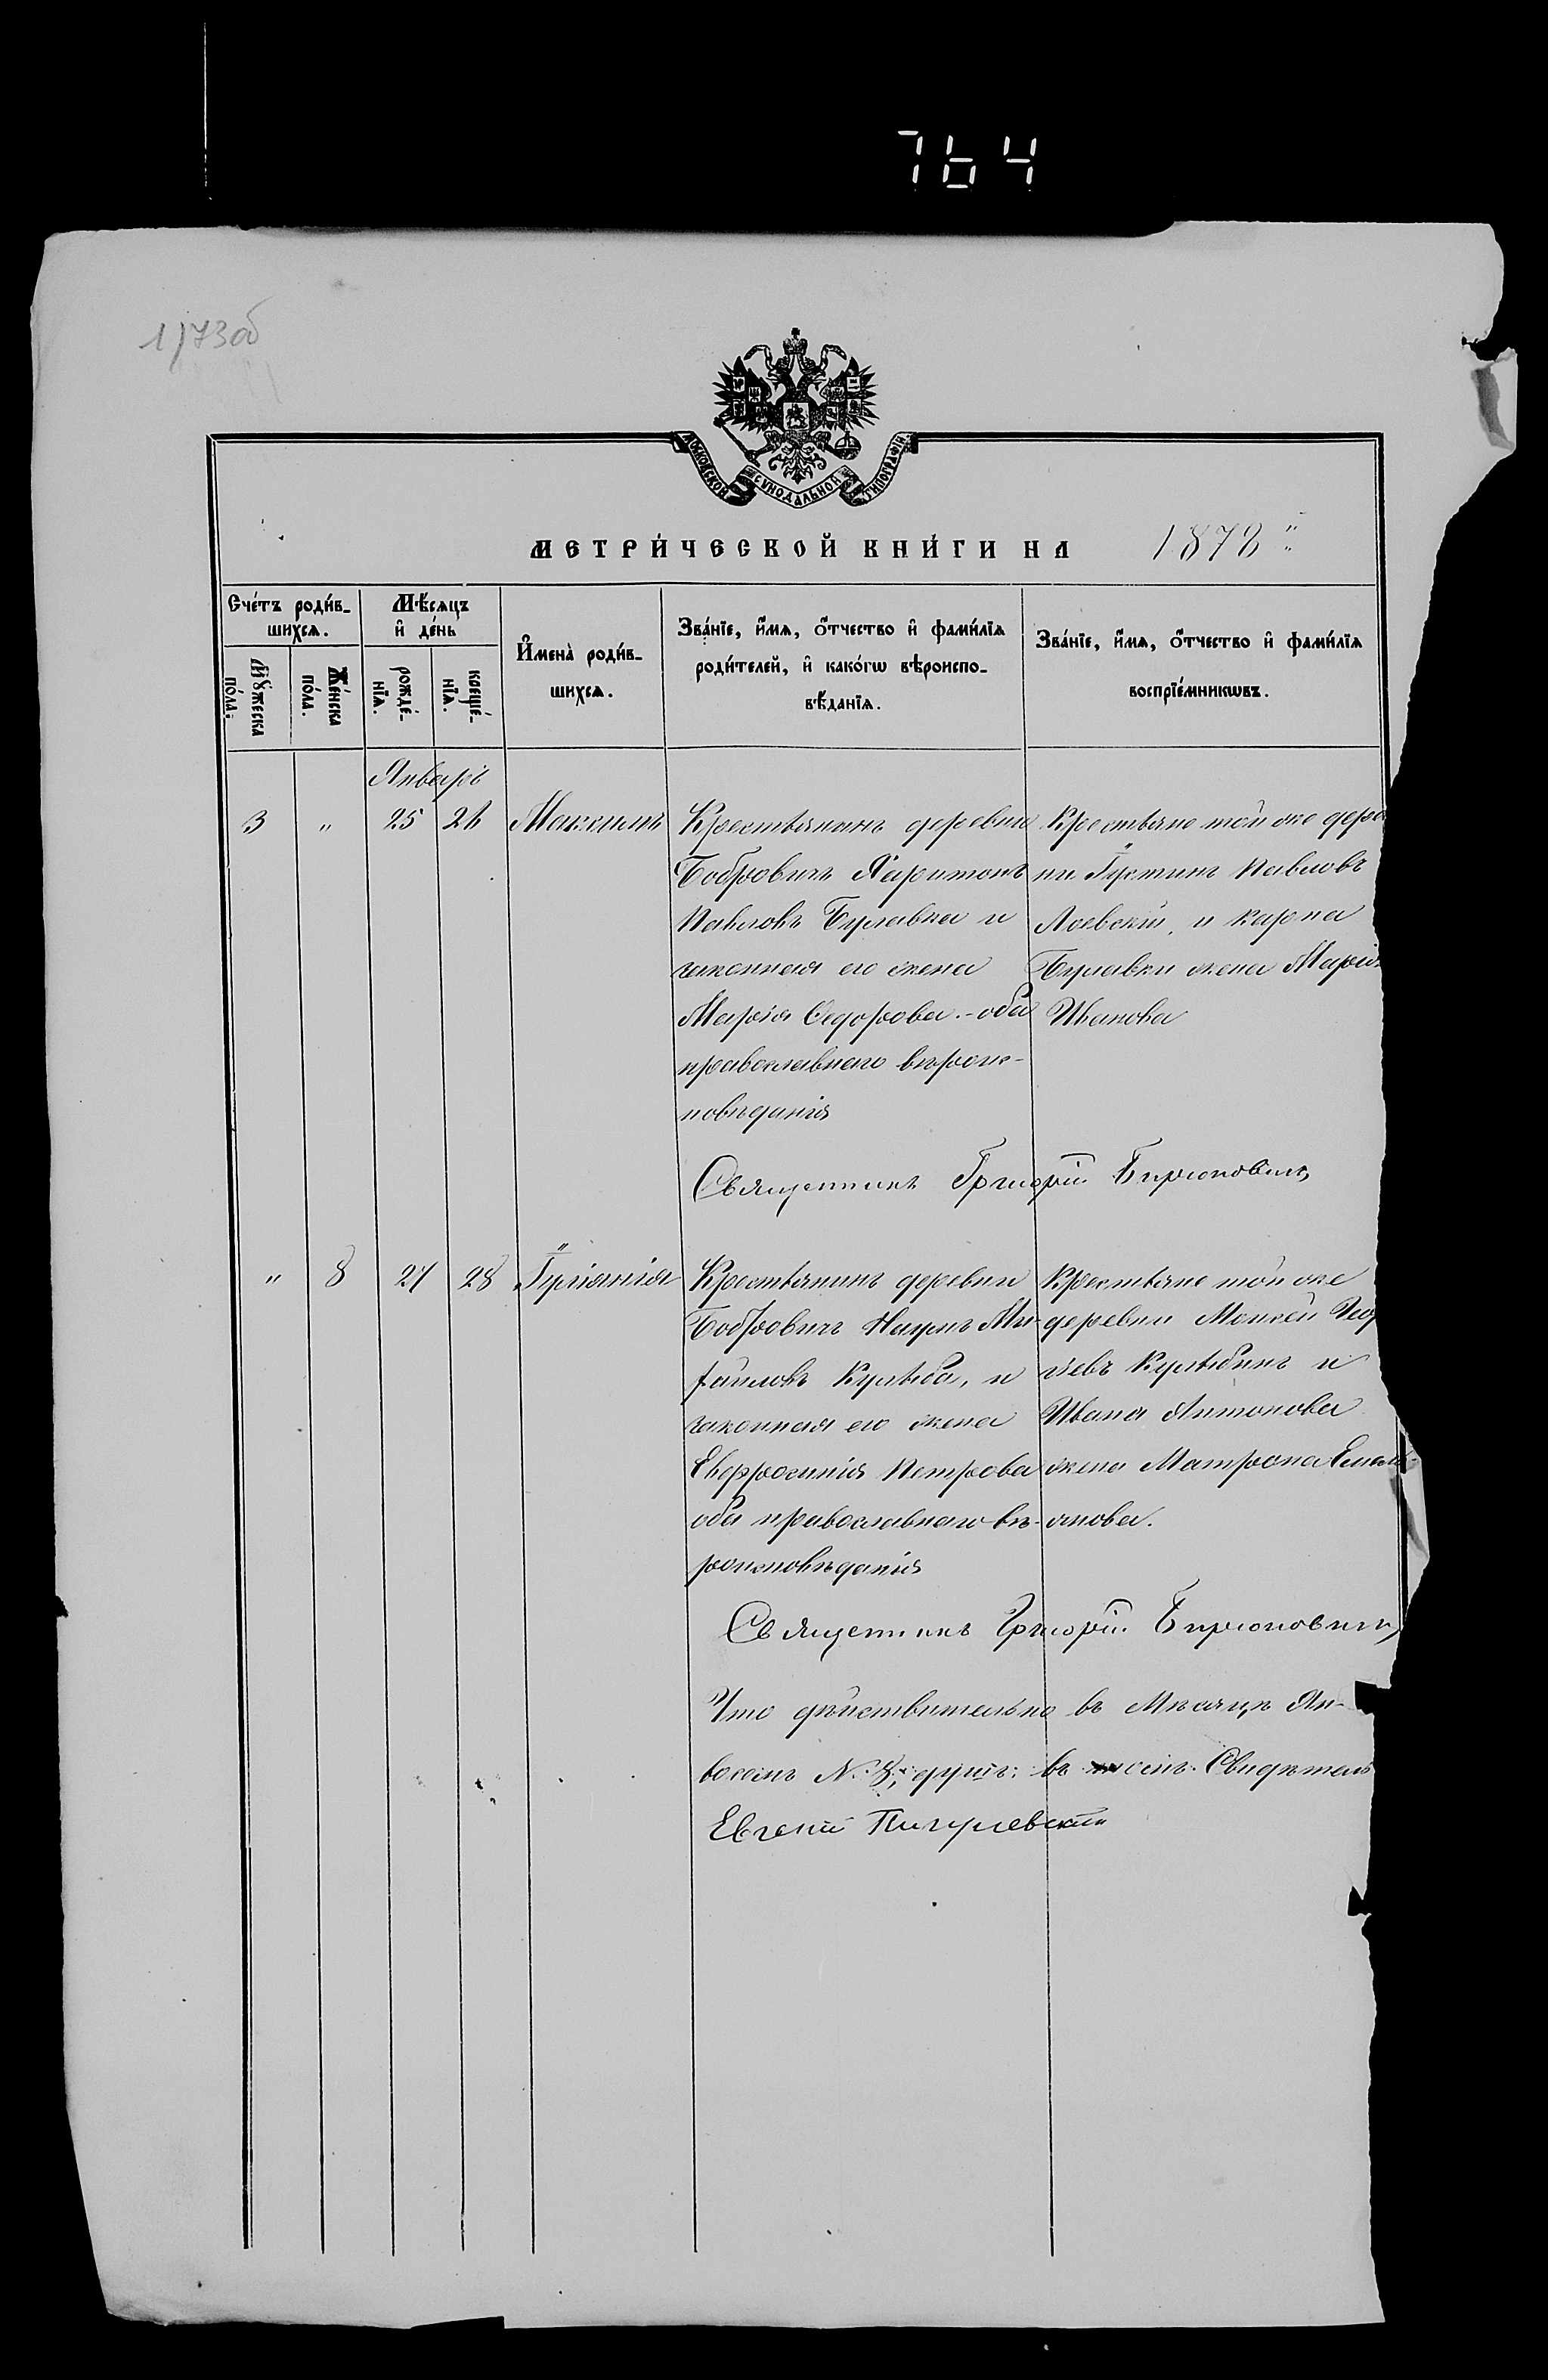 764
1)73об
МОСКОВСКОЙ СѴНОДАЛЬНОЙ ТИПОГРАФІИ
МЕТРИ́ЧЕСКОЙ КНИ́ГИ НА 1878
Сче́тъ роди́в-
шихсѧ.
Мꙋ́жеска
по́ла.
Же́нска
по́ла.
Мѣ́сѧцъ
и҆ де́нь
рожде́-
нїѧ.
креще́-
нїѧ.
И҆мена̀ роди́в-
шихсѧ.
Зва́нїе, и҆́мѧ, о҆́тчество и҆ фами́лїѧ
роди́телей, и҆ како́гѡ вѣроиспо-
вѣ́данїѧ.
Зва́нїе, и҆́мѧ, о҆́тчество и҆ фами́лїѧ
воспрїе́мникѡвъ.
Январь
3 " 25 26 Максимъ
Крестьянинъ деревни
Бобровичъ Харитонъ
Павловъ Булавка и
законная его жена
Марія Сидорова - оба
православнаго вѣроис-
повѣданія
Крестьяне той же дере
ни Іустинъ Павловъ
Лоевскій, и Карпа
Булавки жена Марія
Иванова
Священникъ Григорій Бирюковичъ
" 8 27 28 Іуліанія
Крестьянинъ деревни
Бобровичъ Наумъ Ми-
хайловъ Кулѣба, и
законная его жена
Евфросинія Петрова
оба православнаго вѣ-
роисповѣданія
Крестьяне той же
деревни Моисей
Кулѣбинъ и
Ивана Антонова
жена Матрона Емель-
янова.
Священникъ Григорій Бирюковичъ
Что дѣйствительно въ Мѣсяцѣ Ян-
восемъ N. 8, душъ: въ томъ Свидѣтель
Евгеній